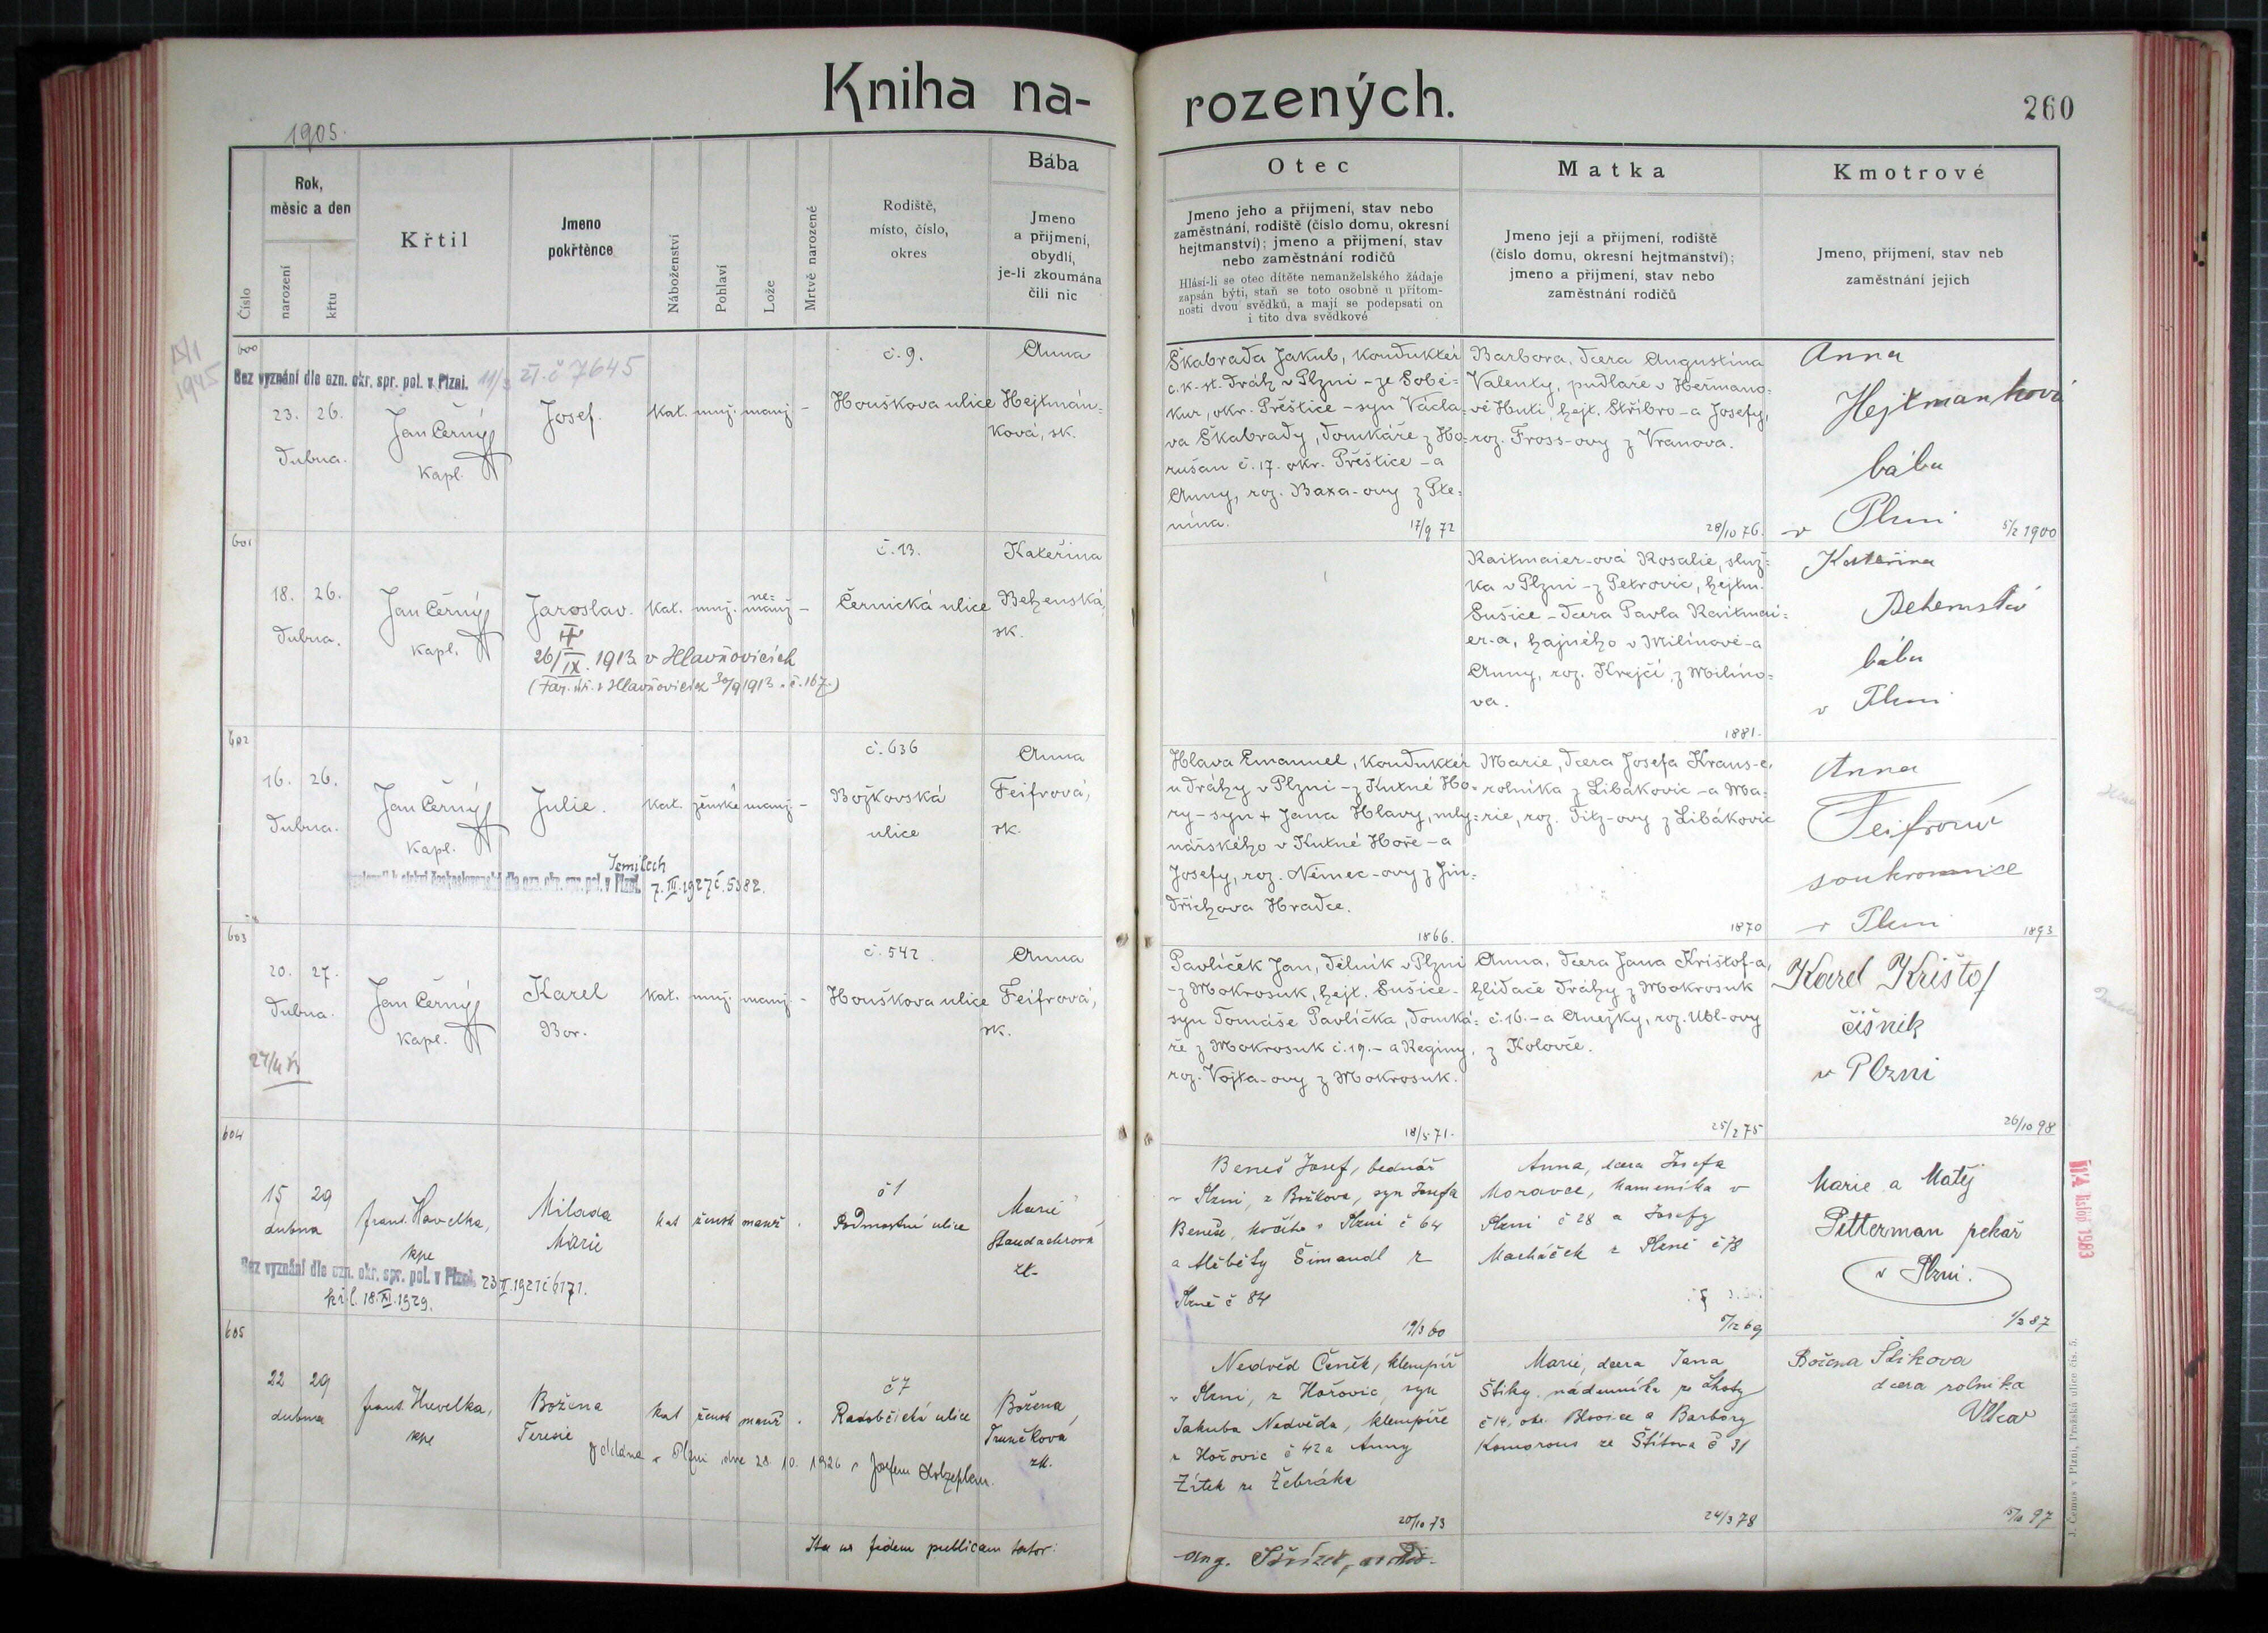 Kniha na-
rozených.
260
1905.
Číslo
Rok,
měsíc a den
narození
křtu
Křtil
Jmeno
pokřtěnce
Náboženství
Pohlaví
Lože
Mrtvě narozené
Rodiště,
místo, číslo,
okres
Bába
Jmeno
a přijmení,
obydlí,
je-li zkoumána
čili nic
Otec
Jmeno jeho a přijmení, stav nebo
zaměstnání, rodiště (číslo domu, okresní
hejtmanství); jmeno a přijmení, stav
nebo zaměstnání rodičů
Hlásí-li se otec dítěte nemanželského žádaje
zapsán býti, staň se toto osobně u přítom-
nosti dvou svědků, a mají se podepsati on
i tito dva svědkové
Matka
Jmeno její a přijmení, rodiště
(číslo domu, okresní hejtmanství);
jmeno a přijmení, stav nebo
zaměstnání rodičů
Kmotrové
Jmeno, přijmení, stav neb
zaměstnání jejich
1945
600
Bez vyznání dle ozn. okr. spr. pol. v Plzni. 11/3 21. č 7645
23. 26.
dubna.
Jan Černý
kapl.
Josef.
kat. muž. manž. -
č. 9.
Houškova ulice
Anna
Hejtmán-
ková, zk.
Škabrada Jakub, konduktér
c. k. st. dráh v Plzni - ze Sobě-
kur, okr. Přeštice - syn Václa-
va Škabrady, domkáře z Ho-
rušan č. 17. okr. Přeštice - a
Anny, roz. Baxa-ovy z Ple-
nína.
17/9 72
Barbora, dcera Augustina
Valenty, pudlaře v Heřmano-
vě Huti, hejt. Stříbro - a Josefy,
roz. Fross-ovy z Vranova.
28/10 76.
Anna
Hejtmanková
bába
v Plzni
5/2 1900
601
18. 26.
dubna.
Jan Černý
kapl.
Jaroslav.
26/IX. 1913 v Hlavňovicích
(Far. úř. v Hlavňovicích 30/9 1913. č. 167.)
kat. muž. ne-
manž -
č. 13.
Černická ulice
Kateřina
Behenská,
zk.
Raitmaier-ová Rosalie, služ-
ka v Plzni - z Petrovic, hejtm.
Sušice - dcera Pavla Raitmai-
er-a, hajného v Milínově - a
Anny, roz. Krejčí, z Milíno-
va.
1881.
Kateřina
bába
v Plzni
602
16. 26.
dubna.
Jan Černý
kapl.
Julie.
kat. ženské manž. -
č. 636
Božkovská
ulice
Anna
Feifrová,
zk.
Semilech
7. III. 1927 č. 5382.
Hlava Emanuel, konduktér
u dráhy v Plzni - z Kutné Ho-
ry - syn + Jana Hlavy, mly-
nářského v Kutné Hoře - a
Josefy, roz. Němec-ovy z Jin-
dřichova Hradce.
1866.
Marie, dcera Josefa Kraus-a,
rolníka z Libákovic - a Ma-
rie, roz. Titz-ovy z Libákovic
1870
Anna
Feifrová
soukromnice
v Plzni
1893
603
20. 27.
dubna.
Jan Černý
kapl.
Karel
Bor.
kat. muž. manž. -
č. 542
Houškova ulice
Anna
Feifrová,
zk.
Pavlíček Jan, dělník v Plzni
- z Mokrosuk, hejt. Sušice -
syn Tomáše Pavlíčka, domká-
ře z Mokrosuk č. 19. - a Reginy,
roz. Vojta-ovy z Mokrosuk.
18/5 71.
Anna, dcera Jana Krištof-a,
hlídače dráhy z Mokrosuk
č. 16. - a Anežky, roz. Ubl-ovy
z Kolovče.
25/2 75
Karel Krištof
číšník
v Plzni
26/10 98
604
15 29
dubna
frant. Havelka,
kpe
Milada
Marie
kat žensk manž .
č 1
Podmostní ulice
Marie
Staudachrová
zk.
Bez vyznání dle ozn. okr. spr. pol. v Plzni. 23 II. 1921 č 6171.
18. XI. 1929.
Beneš Josef, bednář
v Plzni, z Božkova, syn Josefa
Beneše, kočího v Plzni č 64
a Alžběty Šimandl z
Plzně č 84
19/3 60
Anna, dcera Josefa
Moravce, kameníka v
Plzni č 28 a Josefy
Macháček z Plzně č 78
5/12 69
Marie a Matěj
Pitterman pekař
v Plzni.
1/2 87
605
22 29
dubna
frant. Havelka,
kpe
Božena
Teresie
kat žensk manž .
č 7
Radobčická ulice
Božena
Trunčková
zk.
Oddána v Plzni dne 28. 10. 1926 s Josefem
Nedvěd Čeněk, klempíř
v Plzni, z Hořovic, syn
Jakuba Nedvěda, klempíře
z Hořovic č 42 a Anny
Zítek ze Žebráka
20/10 73
Marie, dcera Jana
Štiky, nádenníka ze Lhoty
č 14, okr. Blovice a Barbory
Komorous ze Štítova č 31
24/3 78
Božena Štikova
dcera rolníka
Vlkov
15/10 97
Ita in fidem publicam testor:
J. Čemus v Plzni, Pražská ulice čís. 5.